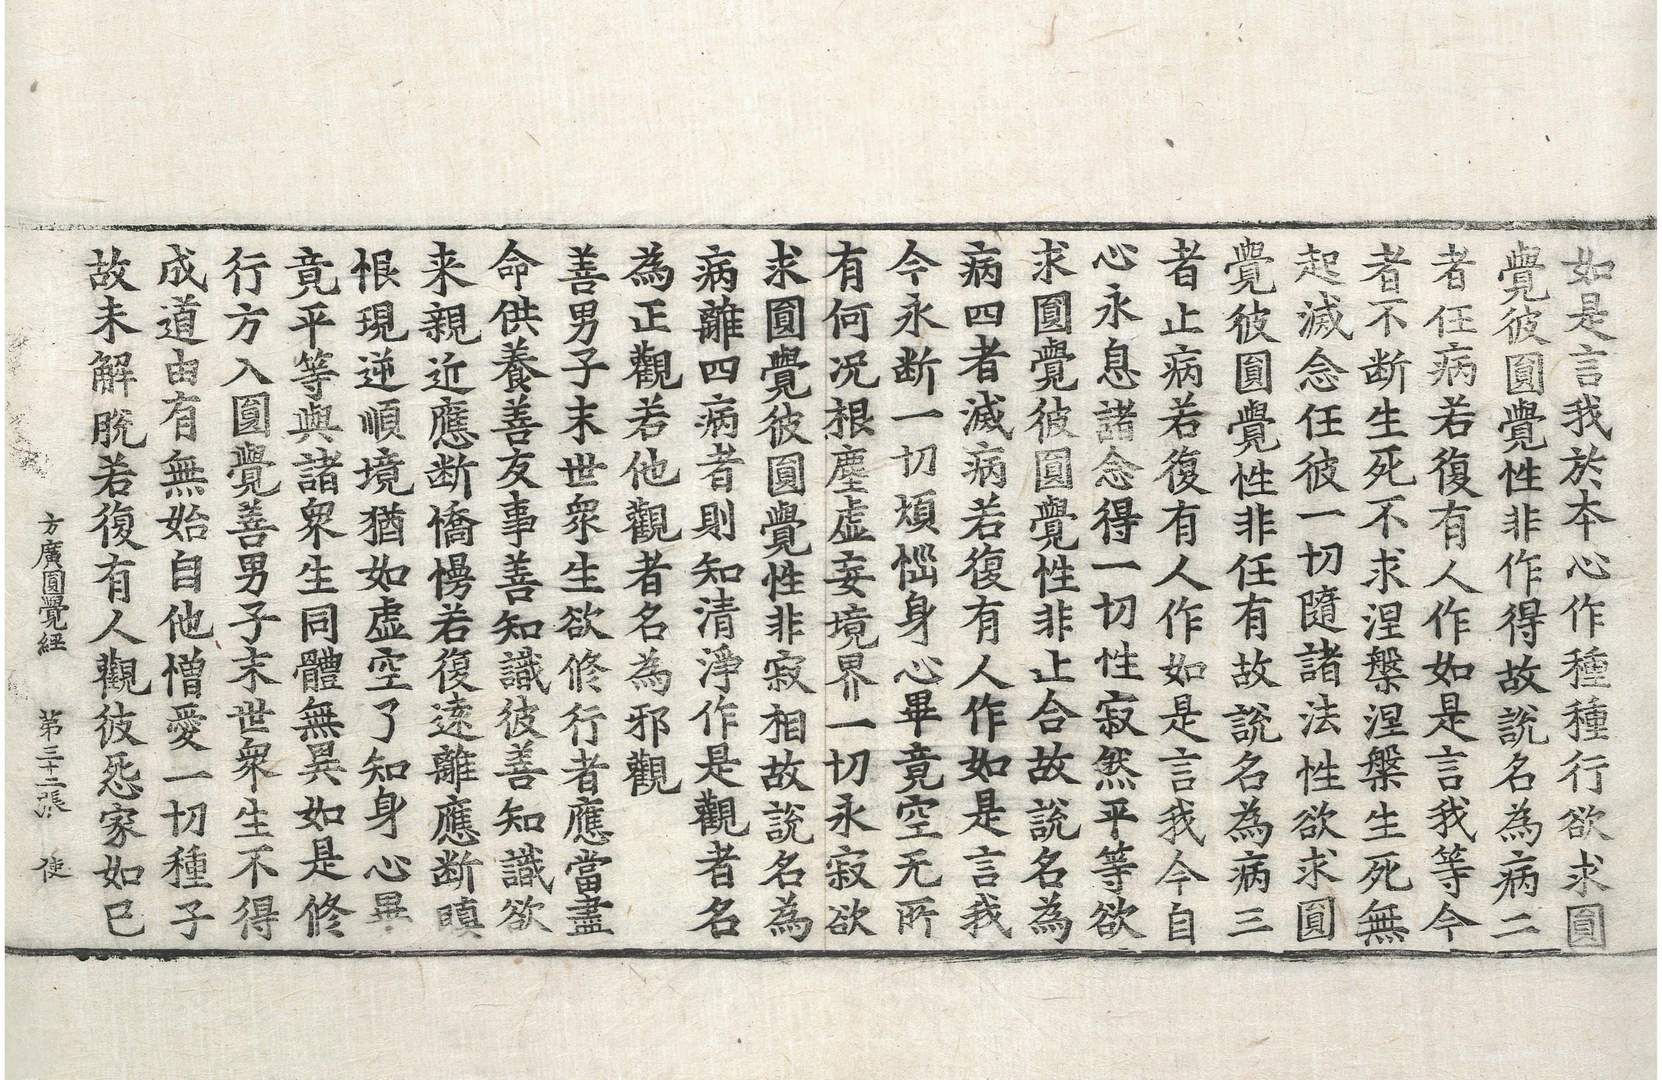 如是言我於本心作種種行欲求圓
覺彼圓覺性非作得故說名為病二
者任病若復有人作如是言我等今
者不断生死不求涅槃涅槃生死無
起滅念任彼一切隨諸法性欲求圓
覺彼圓覺性非任有故說名為病三
者止病若復有人作如是言我今自
心永息諸念得一切性寂然平等欲
求圓覺彼圓覺性非止合故說名為
病四者滅病若復有人作如是言我
今永断一切煩惱身心畢竟空无所
有何况根塵虛妄境界一切永寂欲
求圓覺彼圓覺性非寂相故說名為
病離四病者則知清淨作是觀者名
為正觀若他觀者名為邪觀
善男子末世眾生欲修行者應當盡
命供養善友事善知識彼善知識欲
来親近應断憍慢若復遠離應断瞋
恨現逆順境猶如虛空了知身心畢
竟平等與諸眾生同體無異如是修
行方入圓覺善男子末世眾生不得
成道由有無始自他憎愛一切種子
故未解脫若復有人觀彼惌家如己
方廣圓覺經 第三十二張 使